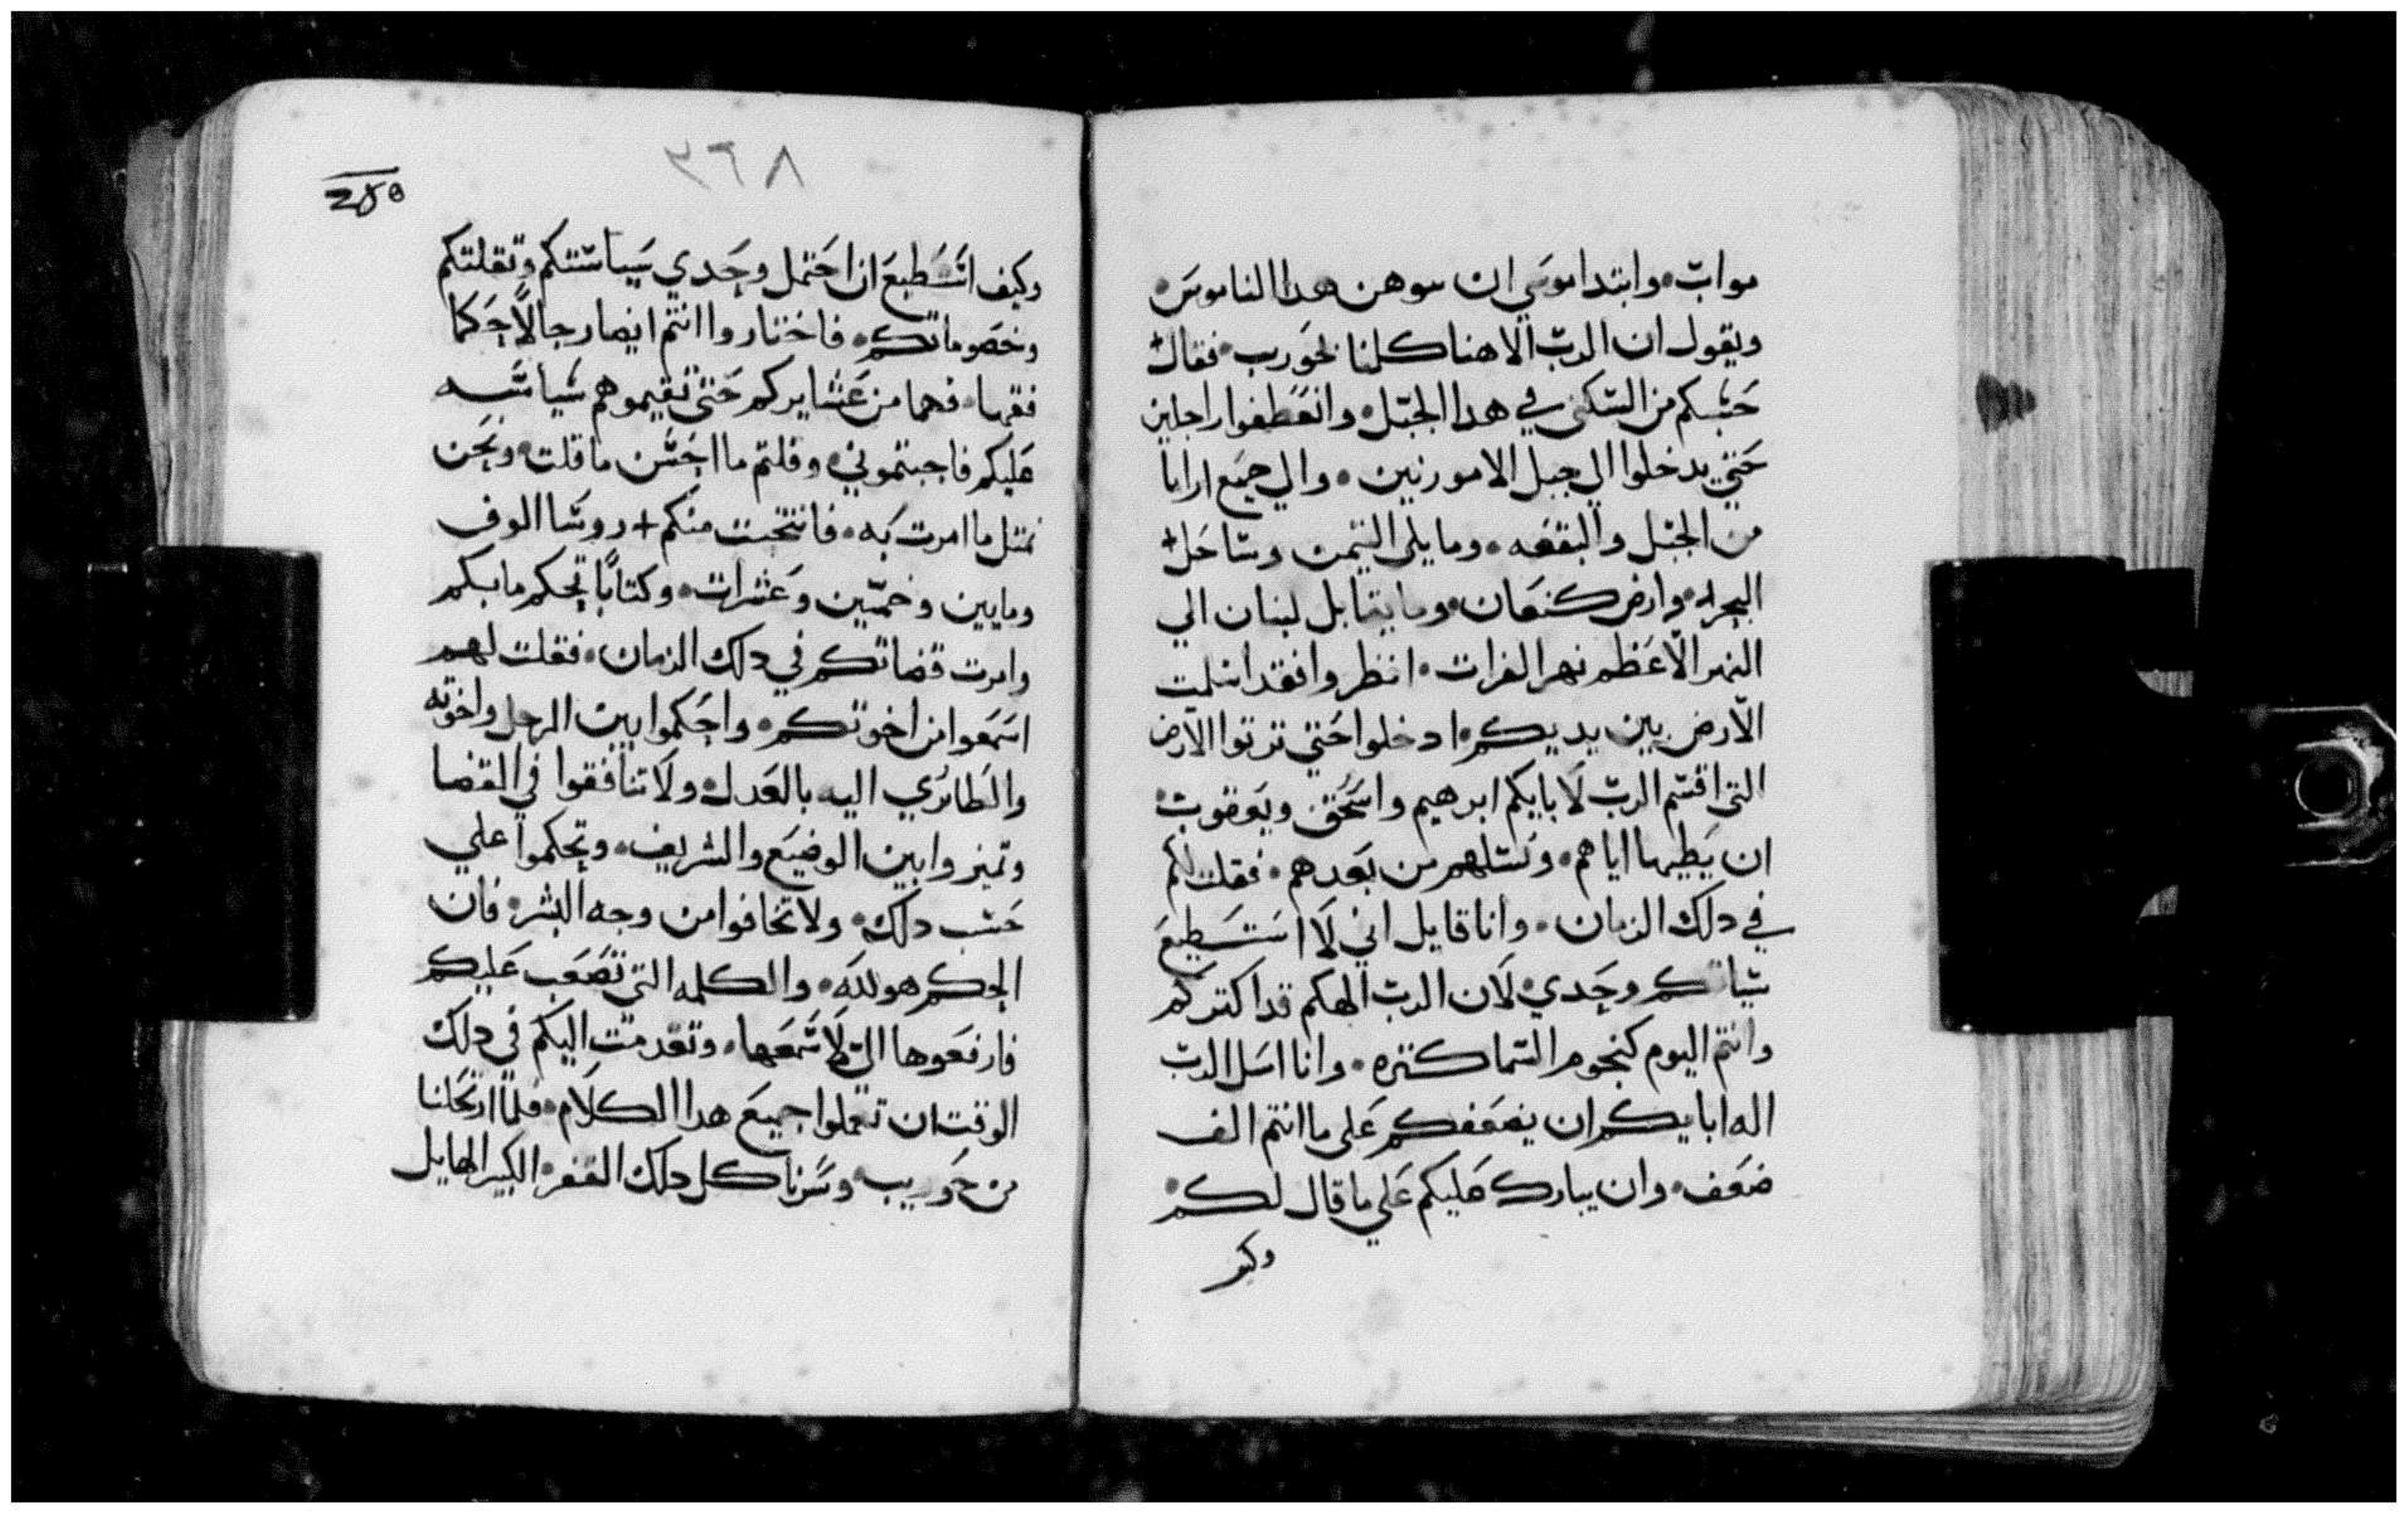 مواب وابتدا موسي ان سوهن هدا الناموس
ويقول ان الرب الاهنا كلنا بحوريب فقال
حسبكم من السكني في هدا الجبل وانعطفوا راجلين
حتي يدخلوا الي جبل الامورنيين والي جميع ارابا
من الجبل والبقعه وما يلي التيمن وساحل
البحر وارض كنعان وما يقابل لبنان الي
النهر الاعظم نهر الفرات انظروا فقد اسلمت
الارض بين يديكم ادخلوا حتي ترتوا الارض
التي اقسم الرب لابايكم ابرهيم واسحق ويعقوب
ان يطيها اياهم ونسلهم من بعدهم فقلت لكم
في دلك الزمان وانا قايل اني لا استطيع
وحدي لان الرب الهكم قد اكتركم
وانتم اليوم كنجوم السما كتره وانا اسل الرب
اله ابايكم ان يضعفكم علي ما انتم الف
ضعف وان يبارك عليكم علي ما قال لكم
وكيف
٣٦٨
وكيف استطيع ان احتمل وحدي سياستكم وتقلتكم
وخصوماتكم فاختاروا انتم ايضا رجالا حكما
فقها فهما من عشايركم حتي تقيموهم سياسه
عليكم فاجبتموني وقلتم ما احسن ما قلت ونحن
نمتل ما امرت به فانتخبت منكم + روسا الوف
ومايين وخمسين وعشرات وكتابا تحكم ما بينكم
وامرت قضاتكم في دلك الزمان فقلت لهم
اسمعوا من اخوتكم واحكموا بين الرجل واخوته
والطاري اليه بالعدل ولا تنافقوا في القضا
وتميزوا بين الوضيع والشريف وتحكموا علي
حسب دلك ولا تخافوا من وجه البشر فان
الحكم هو لله والكلمه التي تصعب عليكم
فارفعوها الي لاسمعها وتقدمت اليكم في دلك
الوقت ان تعملوا جميع هدا الكلام فلما ارتحلنا
من حوريب وسرنا كل دلك القفر الكبير الهايل